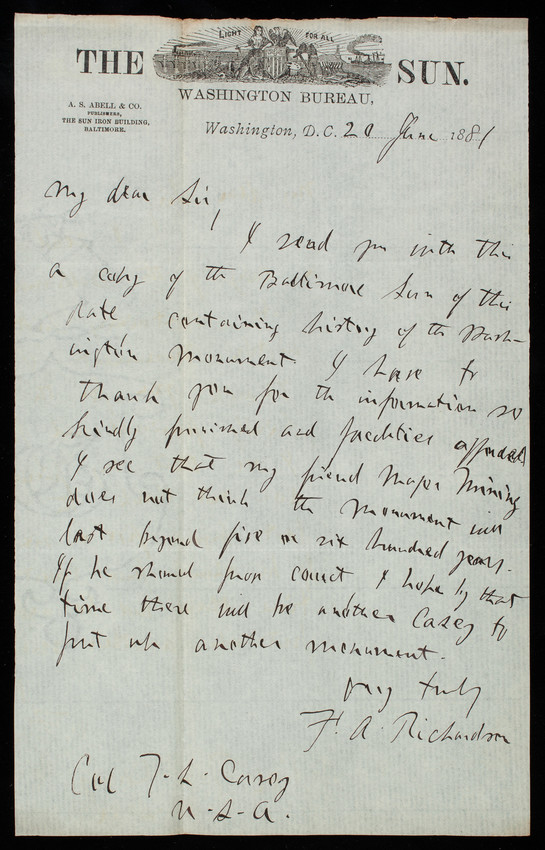 LIGHT FOR ALL
THE SUN.
WASHINGTON BUREAU,
A. S. ABELL & CO.
PUBLISHERS,
THE SUN IRON BUILDING,
BALTIMORE.
Washington, D.C. 20 June 1881
My dear Sir,
I send you with this
a copy of the Baltimore Sun of this
date containing history of the Wash-
ington Monument. I have to
thank you for the information so
kindly furnished and facilities afforded
I see that my friend Major Mining
does not think the Monument will
last beyond five or six hundred years.
If he should prove correct I hope by that
time there will be another Casey to
put up another monument.
Very truly
F. A. Richardson
Col T. L. Casey
U.S.A.